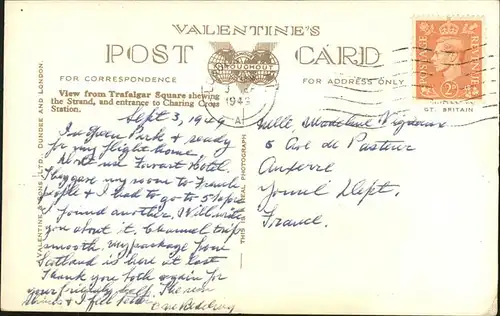 VALENTINE'S
POST CARD
FOR CORRESPONDENCE
FOR ADDRESS ONLY
View from Trafalgar Square shewing
the Strand, and entrance to Charing Cross
Station.
VALENTINE & SONS, LTD., DUNDEE AND LONDON.
THIS IS A REAL PHOTOGRAPH
THROUGHOUT
1949
A
POSTAGE
REVENUE
2D
GT. BRITAIN
Sept 3, 1949
In Green Park & ready
for my flight home.
Hotel.
They gave my room to French
people & I had to go to 5 places
I found another. Will write
you about it. Channel trip
smooth. My package from
Scotland is here at last
Thank you both again for
your friendly help. The new
& I feel
Mlle. Madeleine
5 Ave de Pasteur
Auxerre
Dept.
France.